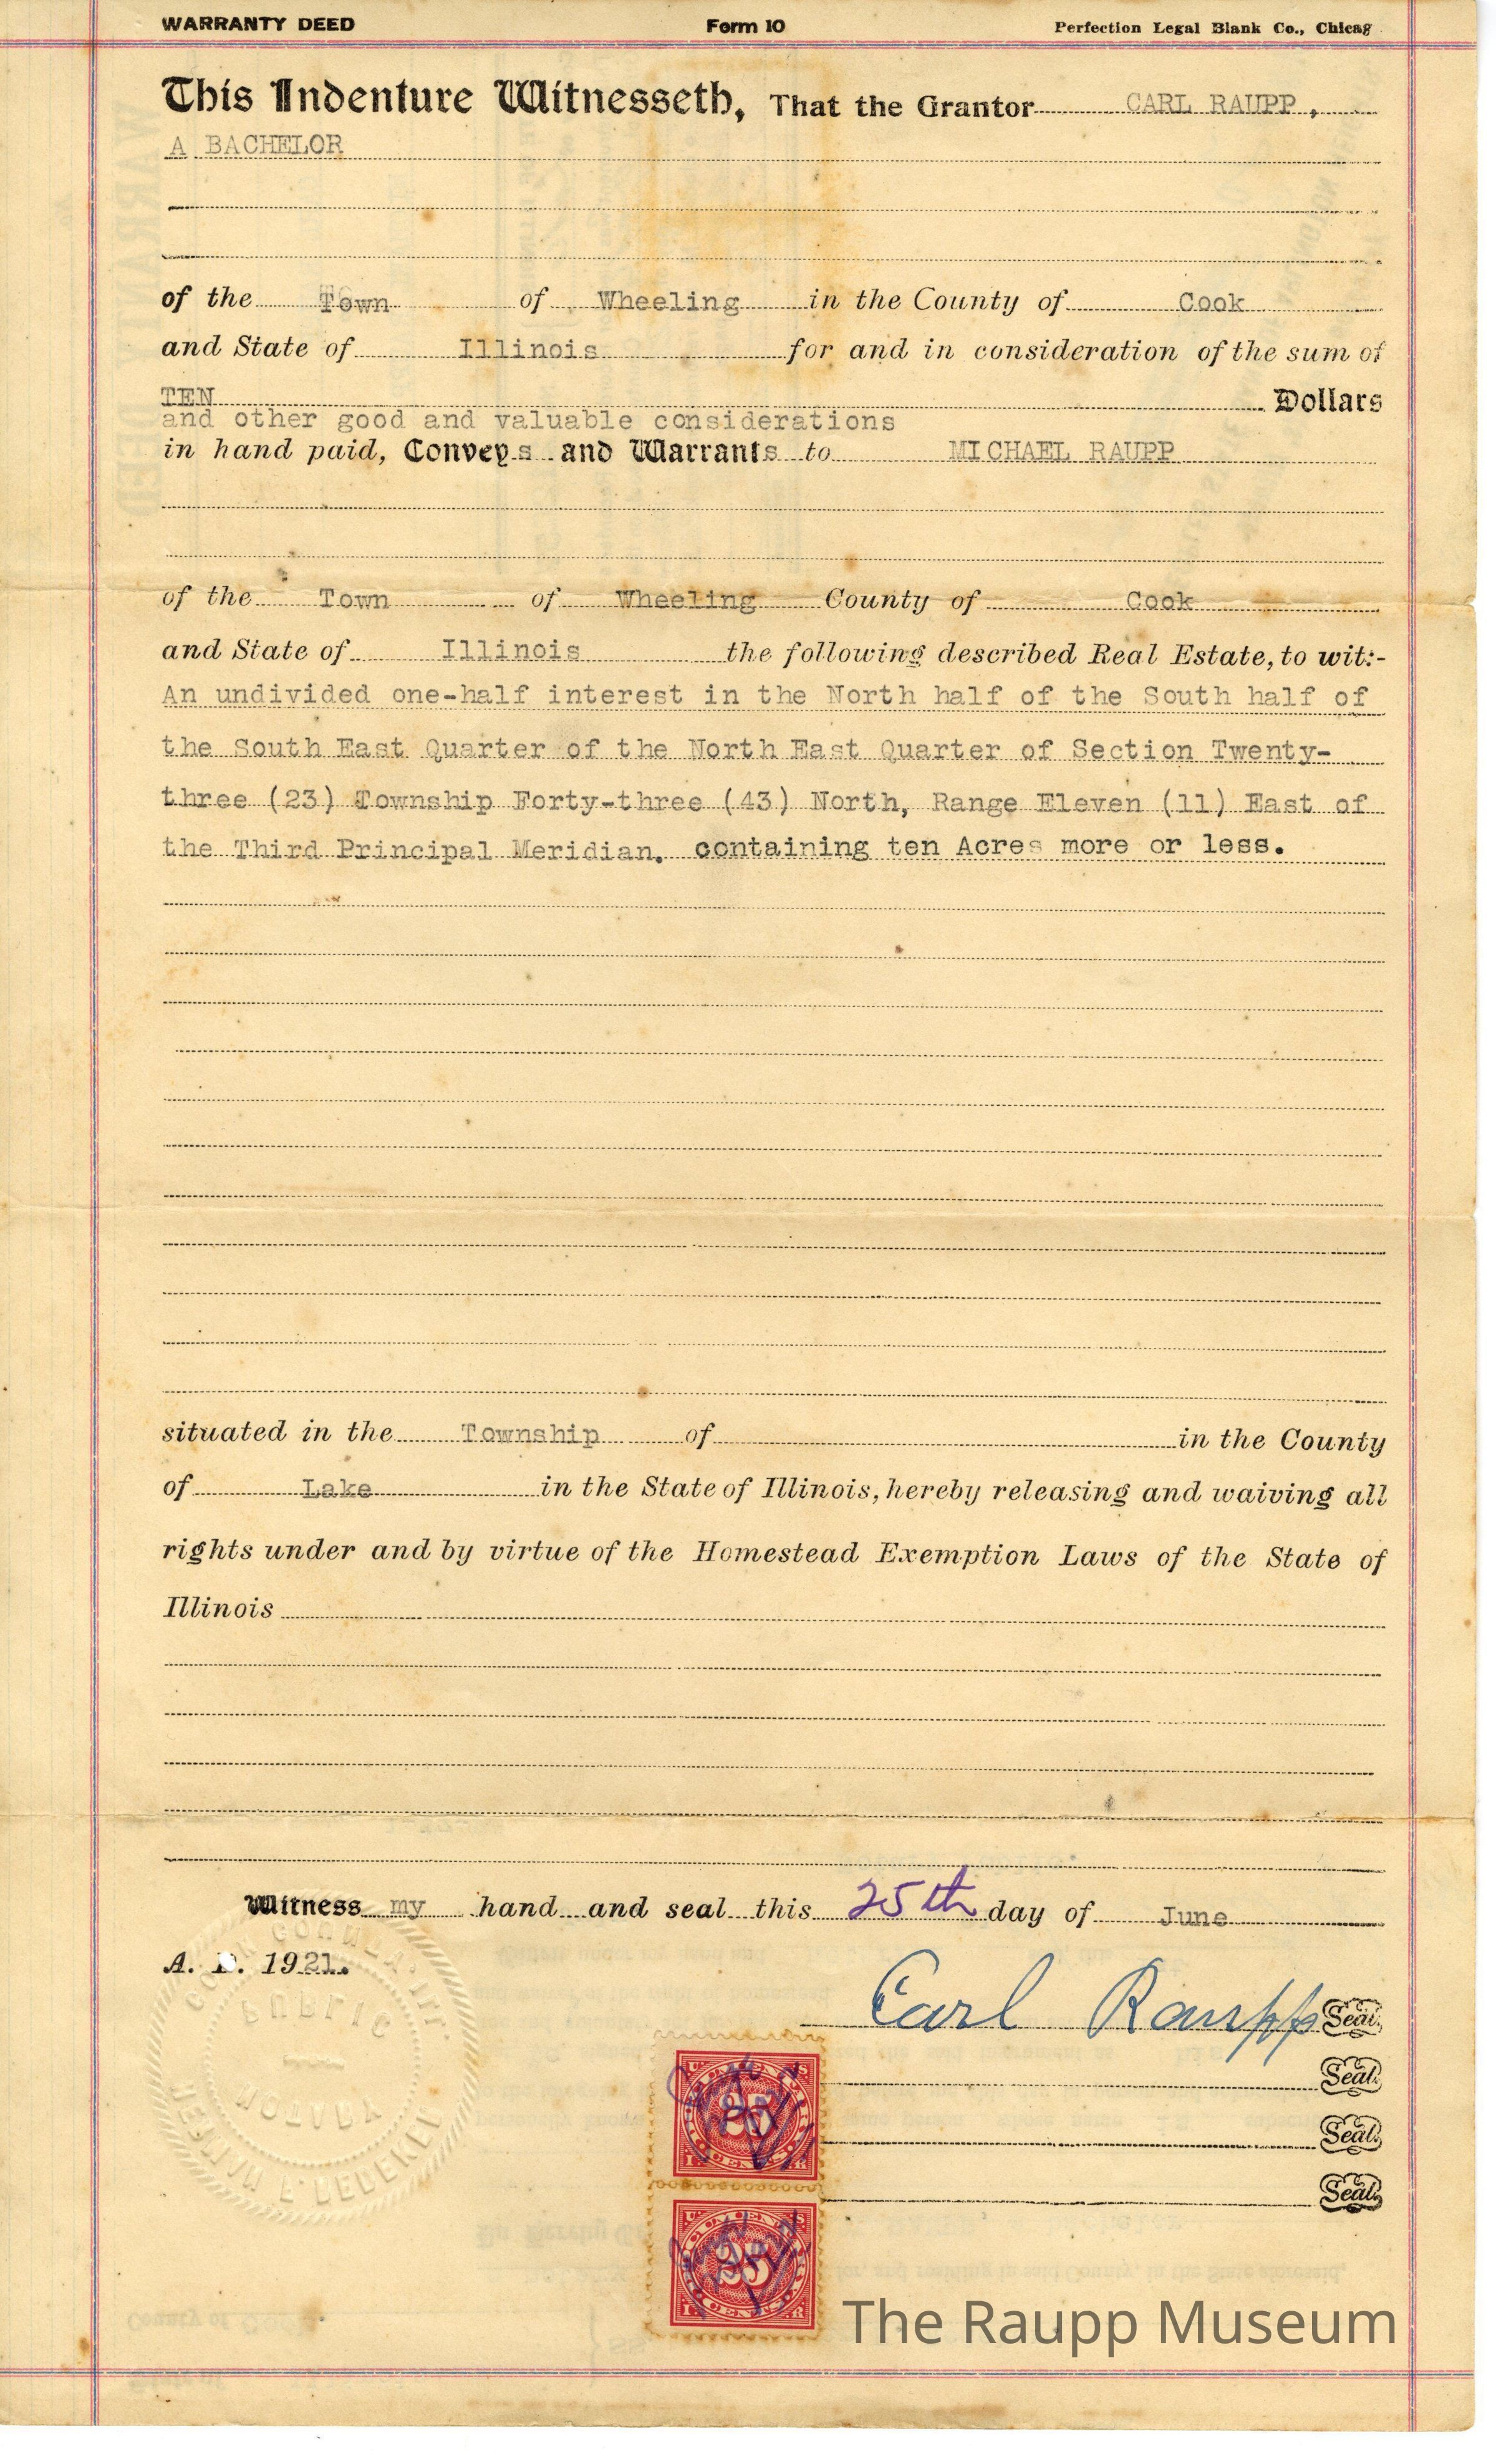 WARRANTY DEED Form 10 Perfection Legal Blank Co., Chicag
This Indenture Witnesseth, That the Grantor CARL RAUPP,
A BACHELOR
of the Town of Wheeling in the County of Cook
and State of Illinois for and in consideration of the sum of
TEN Dollars
and other good and valuable considerations
in hand paid, Conveys and Warrants to MICHAEL RAUPP
of the Town of Wheeling County of Cook
and State of Illinois the following described Real Estate, to wit:-
An undivided one-half interest in the North half of the South half of
the South East Quarter of the North East Quarter of Section Twenty-
three (23) Township Forty-three (43) North, Range Eleven (11) East of
the Third Principal Meridian. containing ten Acres more or less.
situated in the Township of in the County
of Lake in the State of Illinois, hereby releasing and waiving all
rights under and by virtue of the Homestead Exemption Laws of the State of
Illinois
Witness my hand and seal this 25th day of June
A. D. 1921.
Carl Raupp Seal.
Seal.
Seal.
Seal.
NOTARY
PUBLIC
U.S. DOCUMENTARY
25
CENTS
I. R.
U.S. DOCUMENTARY
25
CENTS
I. R.
The Raupp Museum